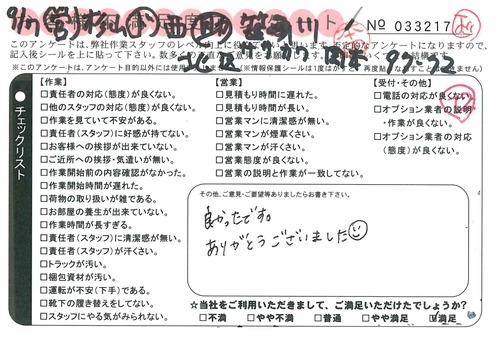 No 033217
このアンケートは、弊社作業スタッフのレベル向上に
否定的なアンケートになりますので、
記入後シールを上に貼って下さい。
(※このアンケートは、アンケート目的以外には使用
(※情報保護シールは1度はがすと再度貼りなおすことができません)
チェックリスト
【作業】
□責任者の対応(態度)が良くない。
□他のスタッフの対応(態度)が良くない。
□作業を見ていて不安がある。
□責任者(スタッフ)に好感が持てない。
□お客様への挨拶が出来ていない。
□ご近所への挨拶・気遣いが無い。
□作業開始前の内容確認がなかった。
□作業開始時間が遅れた。
□荷物の取り扱いが雑である。
□お部屋の養生が出来ていない。
□作業時間が長すぎる。
□責任者(スタッフ)に清潔感が無い。
□責任者(スタッフ)が汗くさい。
□トラックが汚い。
□梱包資材が汚い。
□運転が不安(下手)である。
□靴下の履き替えをしてない。
□スタッフにやる気がみられない。
【営業】
□見積もり時間に遅れた。
□見積もり時間が長い。
□営業マンに清潔感が無い。
□営業マンが煙草くさい。
□営業マンが汗くさい。
□営業態度が良くない。
□営業の説明と作業が一致してない。
【受付・その他】
□電話の対応が良くない。
□オプション業者の説明・作業が良くない。
□オプション業者の対応(態度)が良くない。
その他、ご意見・ご要望等ありましたらお書き下さい。
良かったです。
ありがとうございました
☆当社をご利用いただきまして、ご満足いただけたでしょうか?
□不満 □やや不満 □普通 □やや満足 ☑満足